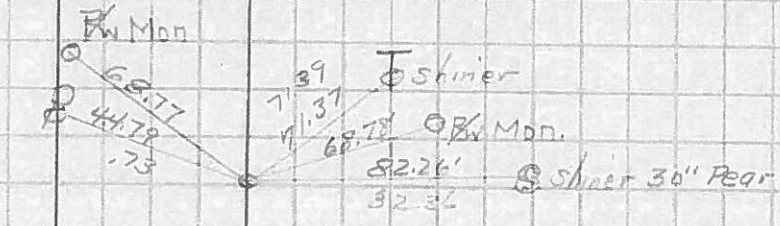 R/W Mon
68.77
44.79
.73
71.39
71.37
Shiner
68.78'
R/W Mon.
82.26'
Shiner 30" Pear